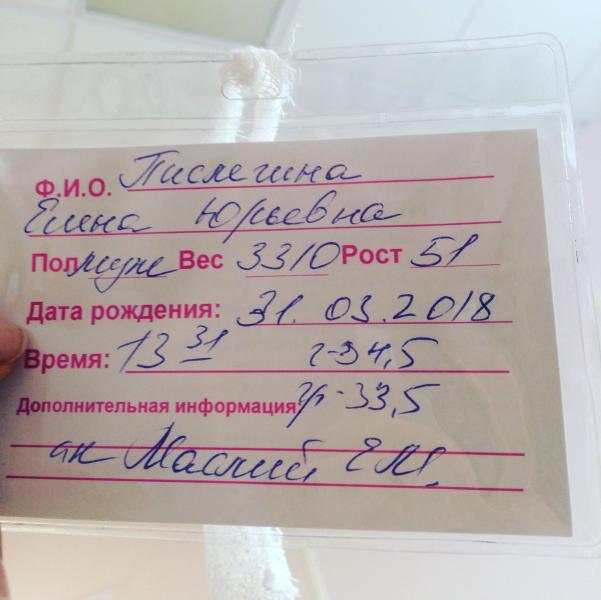 Ф.И.О. Пислегина
Елена Юрьевна
Пол муж Вес 3310 Рост 51
Дата рождения: 31. 03. 2018
Время: 13 31 г-34,5
Дополнительная информация гр-33,5
ак Маслий Е.М.